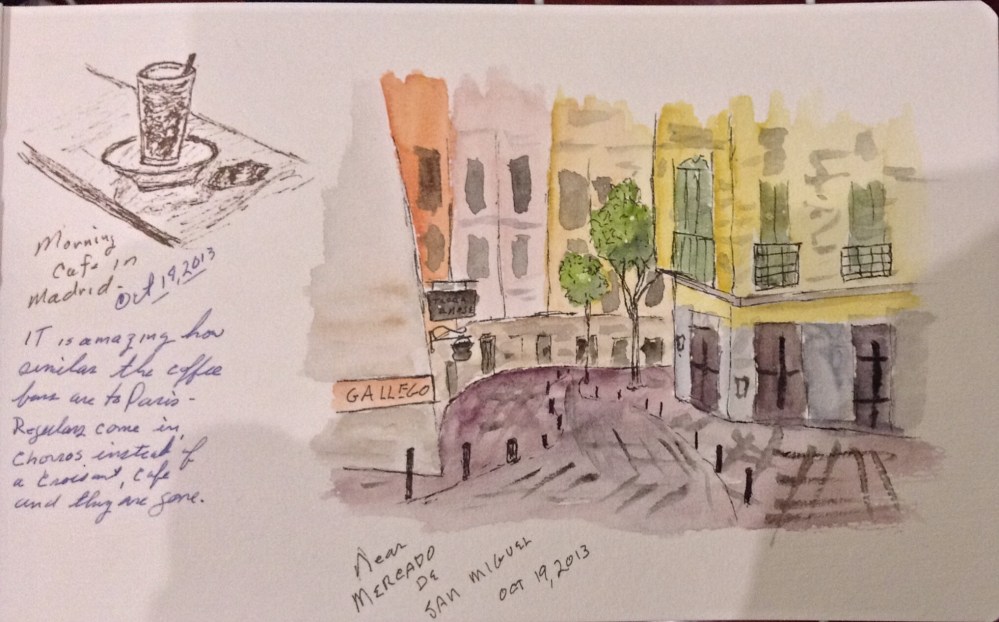 Morning
Cafe in
Madrid. Oct 19, 2013
IT is amazing how
similar the coffee
bars are to Paris -
Regulars come in,
Chorros instead of
a Croisant, Cafe
and they are gone.
GALLEGO
Near
MERCADO
DE
SAN MIGUEL
OCT 19, 2013